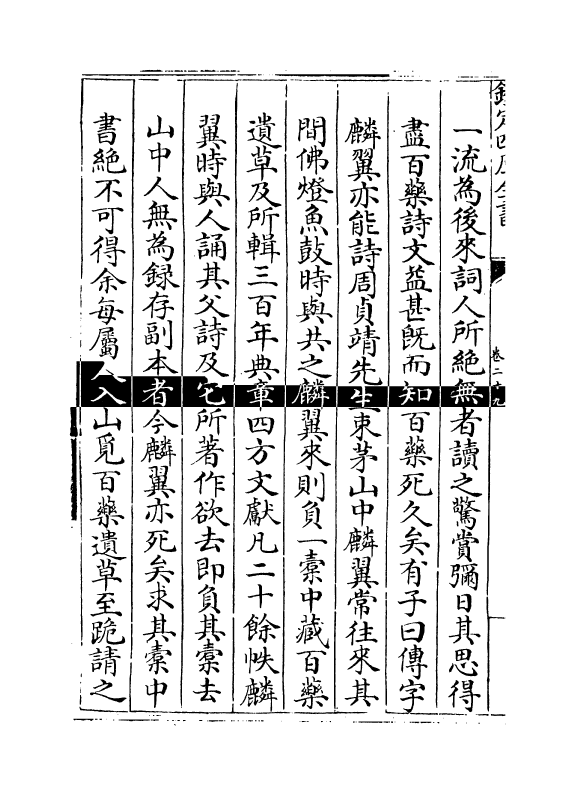 一流為後來詞人所絶無者讀之驚賞彌日其思得
盡百藥詩文益甚既而知百藥死久矣有子曰傳字
麟翼亦能詩周貞靖先生束茅山中麟翼常往來其
間佛燈魚鼓時與共之麟翼來則負一橐中藏百藥
遺草及所輯三百年典章四方文獻凡二十餘帙麟
翼時與人誦其父詩及它所著作欲去即負其橐去
山中人無為録存副本者今麟翼亦死矣求其橐中
書絶不可得余每屬人入山覓百藥遺草至跪請之